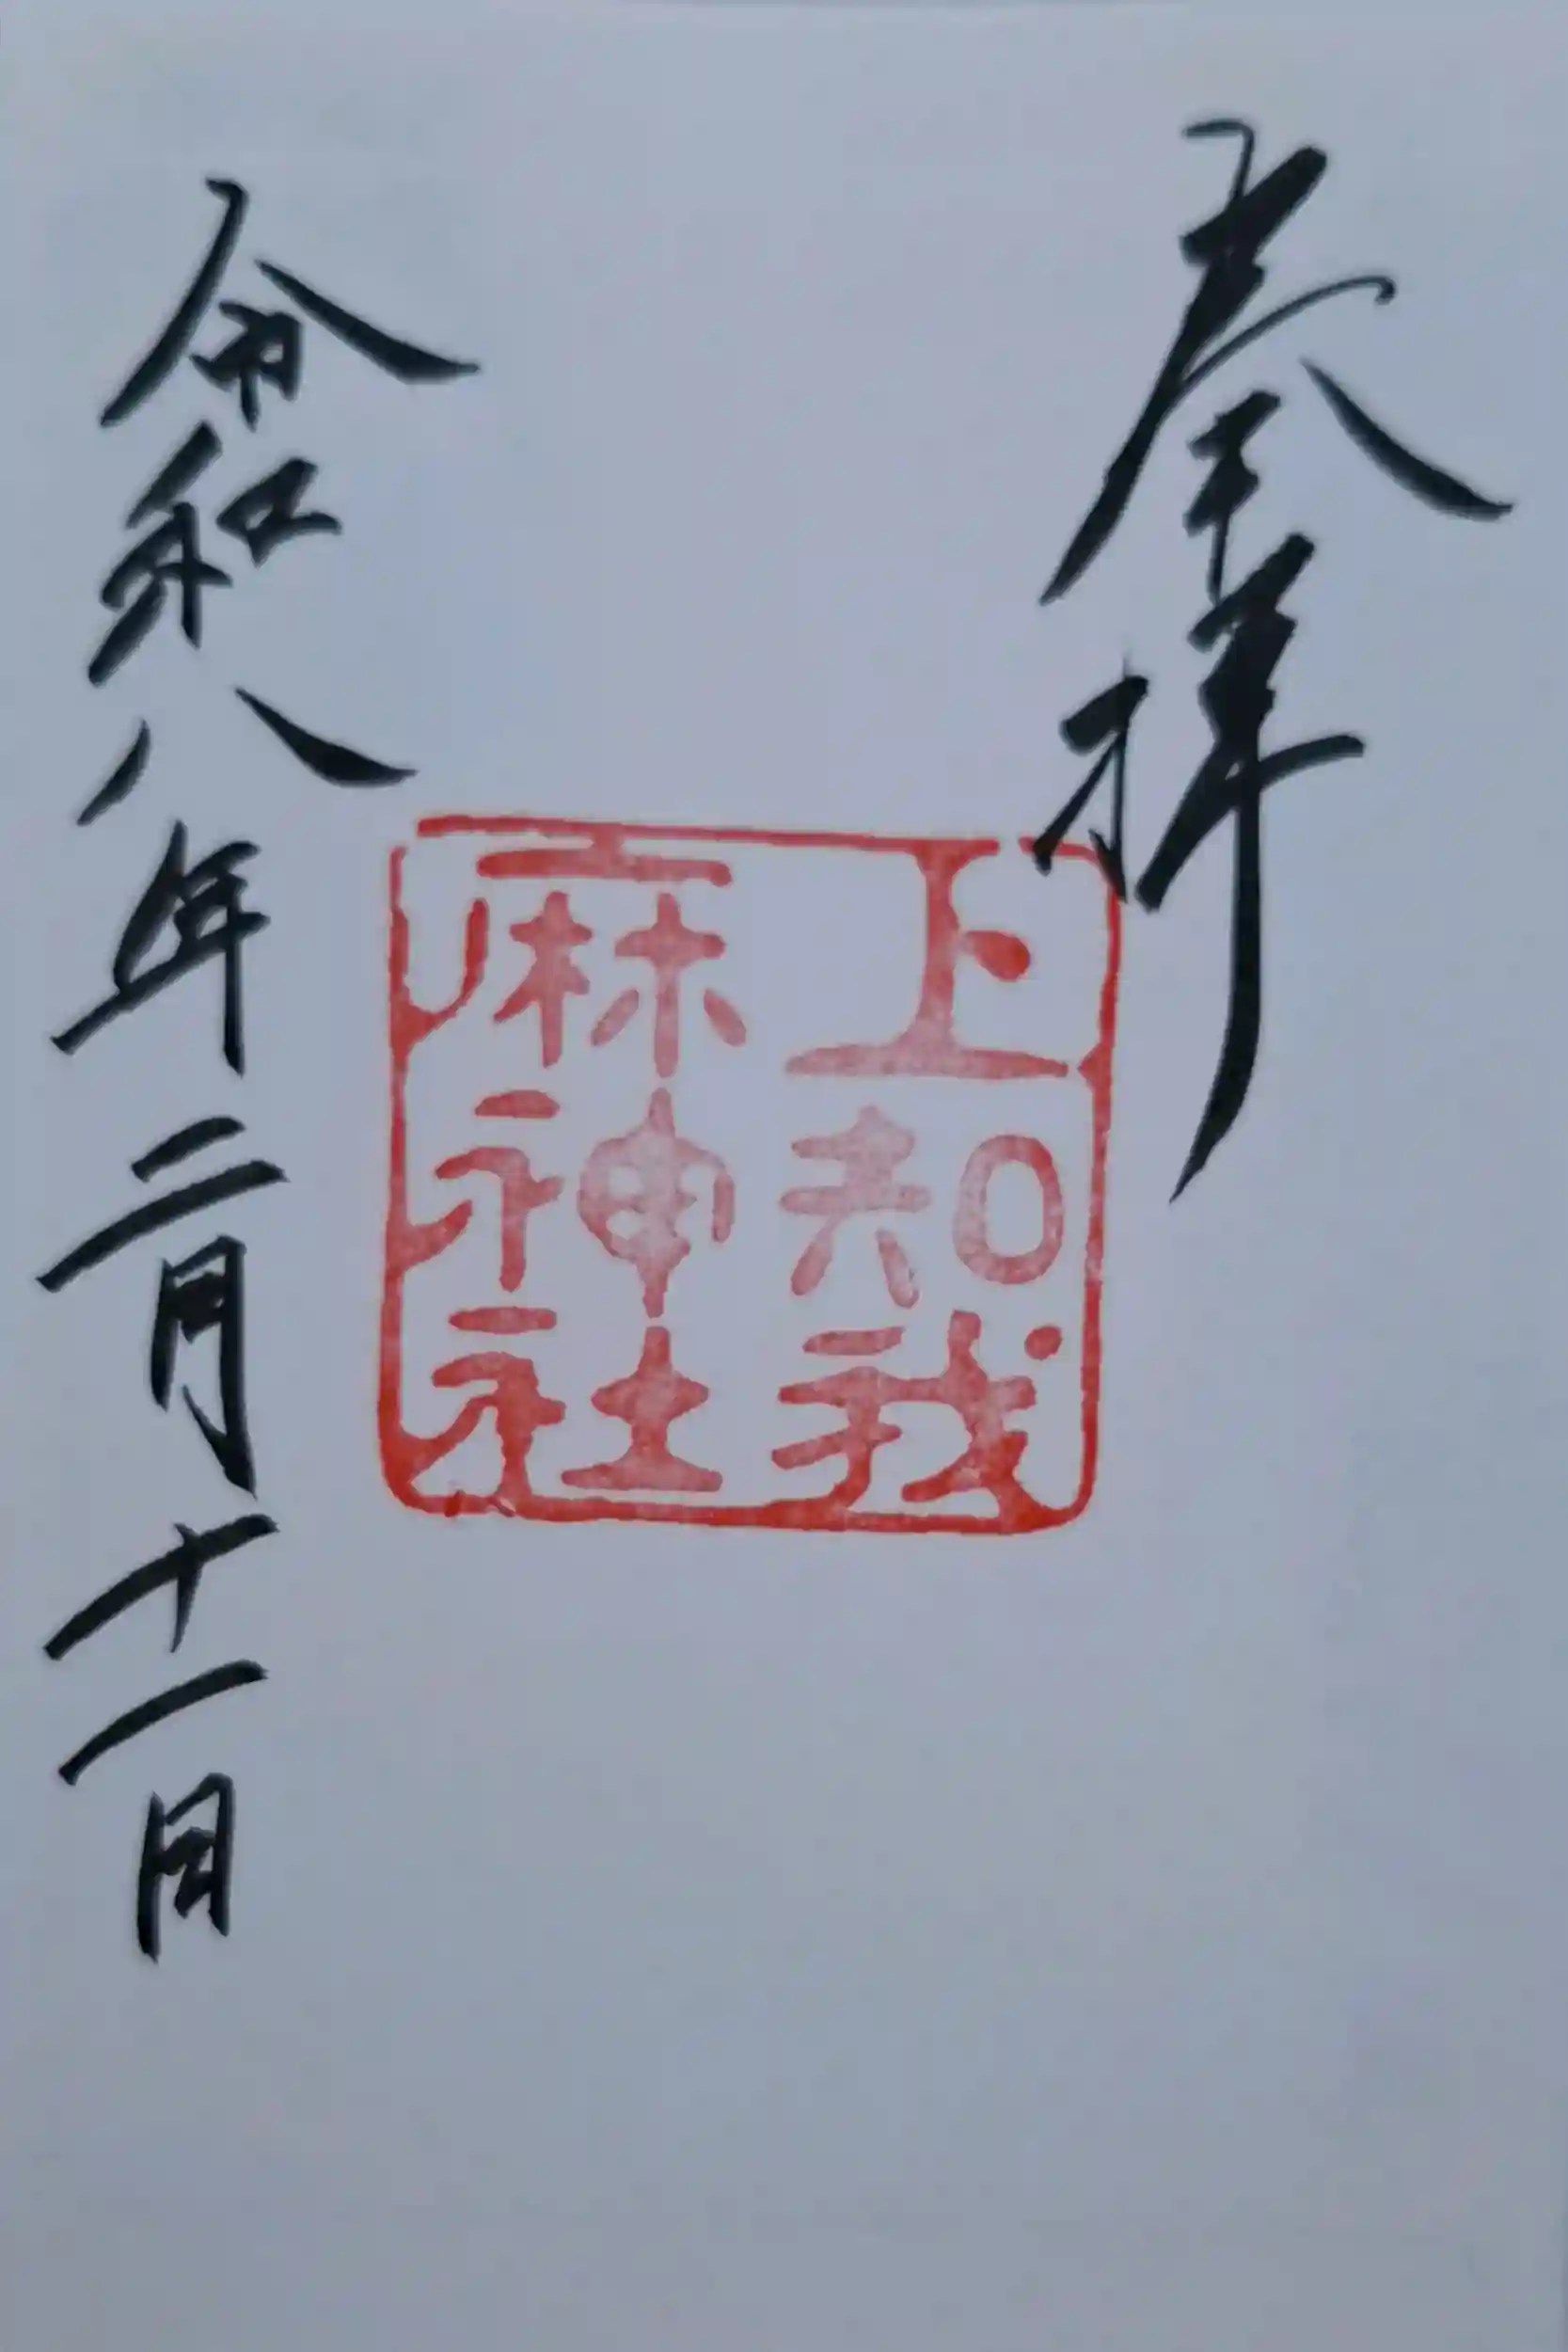 奉拝
上知我
麻神社
令和八年二月十一日